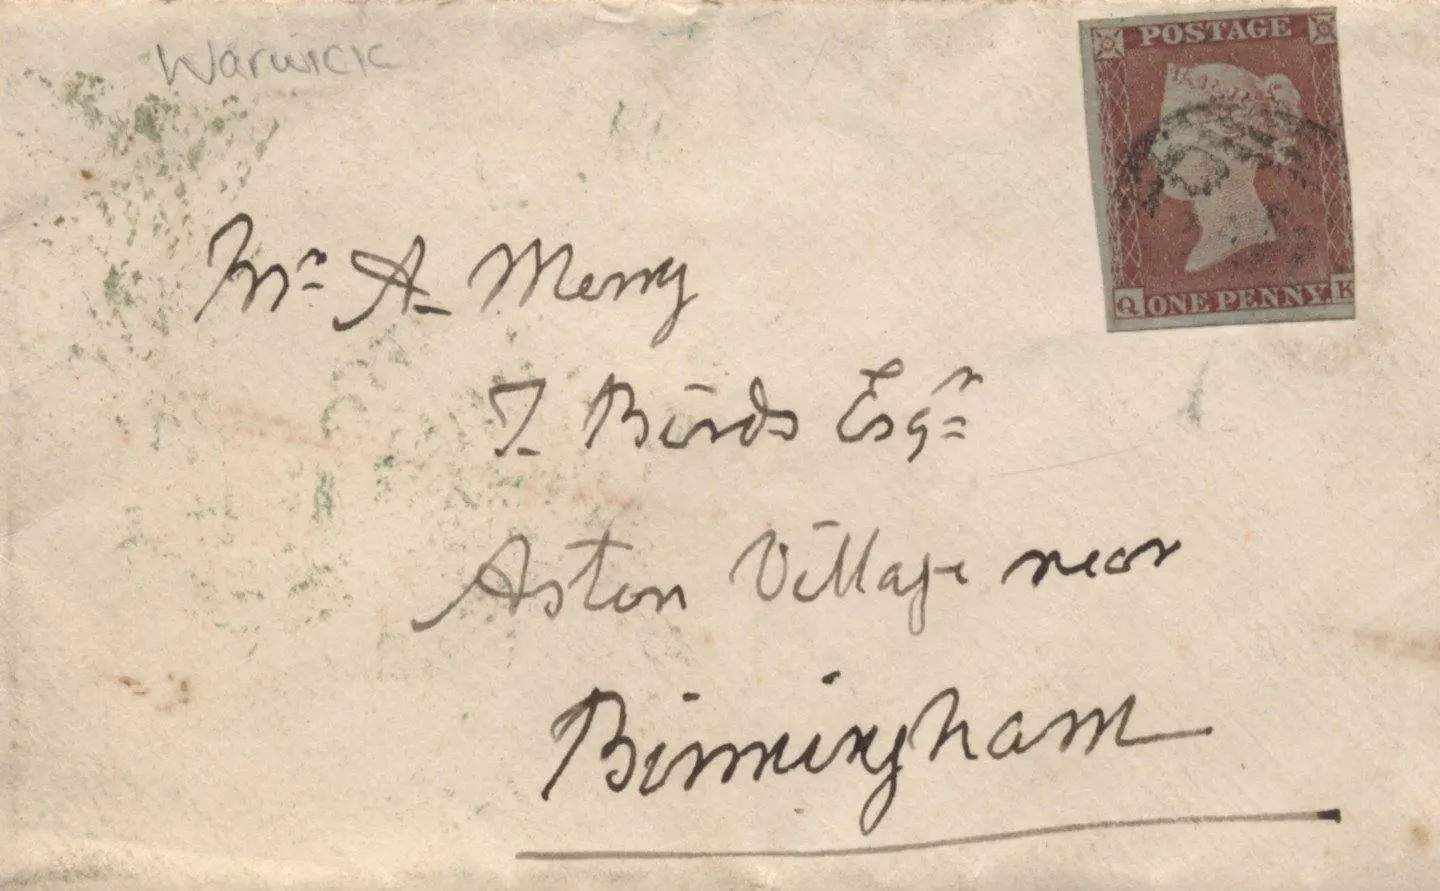 Warwick
POSTAGE
Q ONE PENNY K
Mr A Merry
T. Birds Esqr
Aston Village near
Birmingham